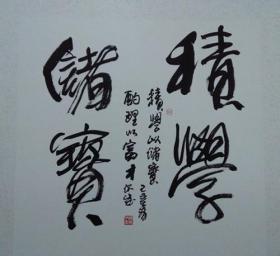 積學
儲寶
積學以儲寶
酌理以富才